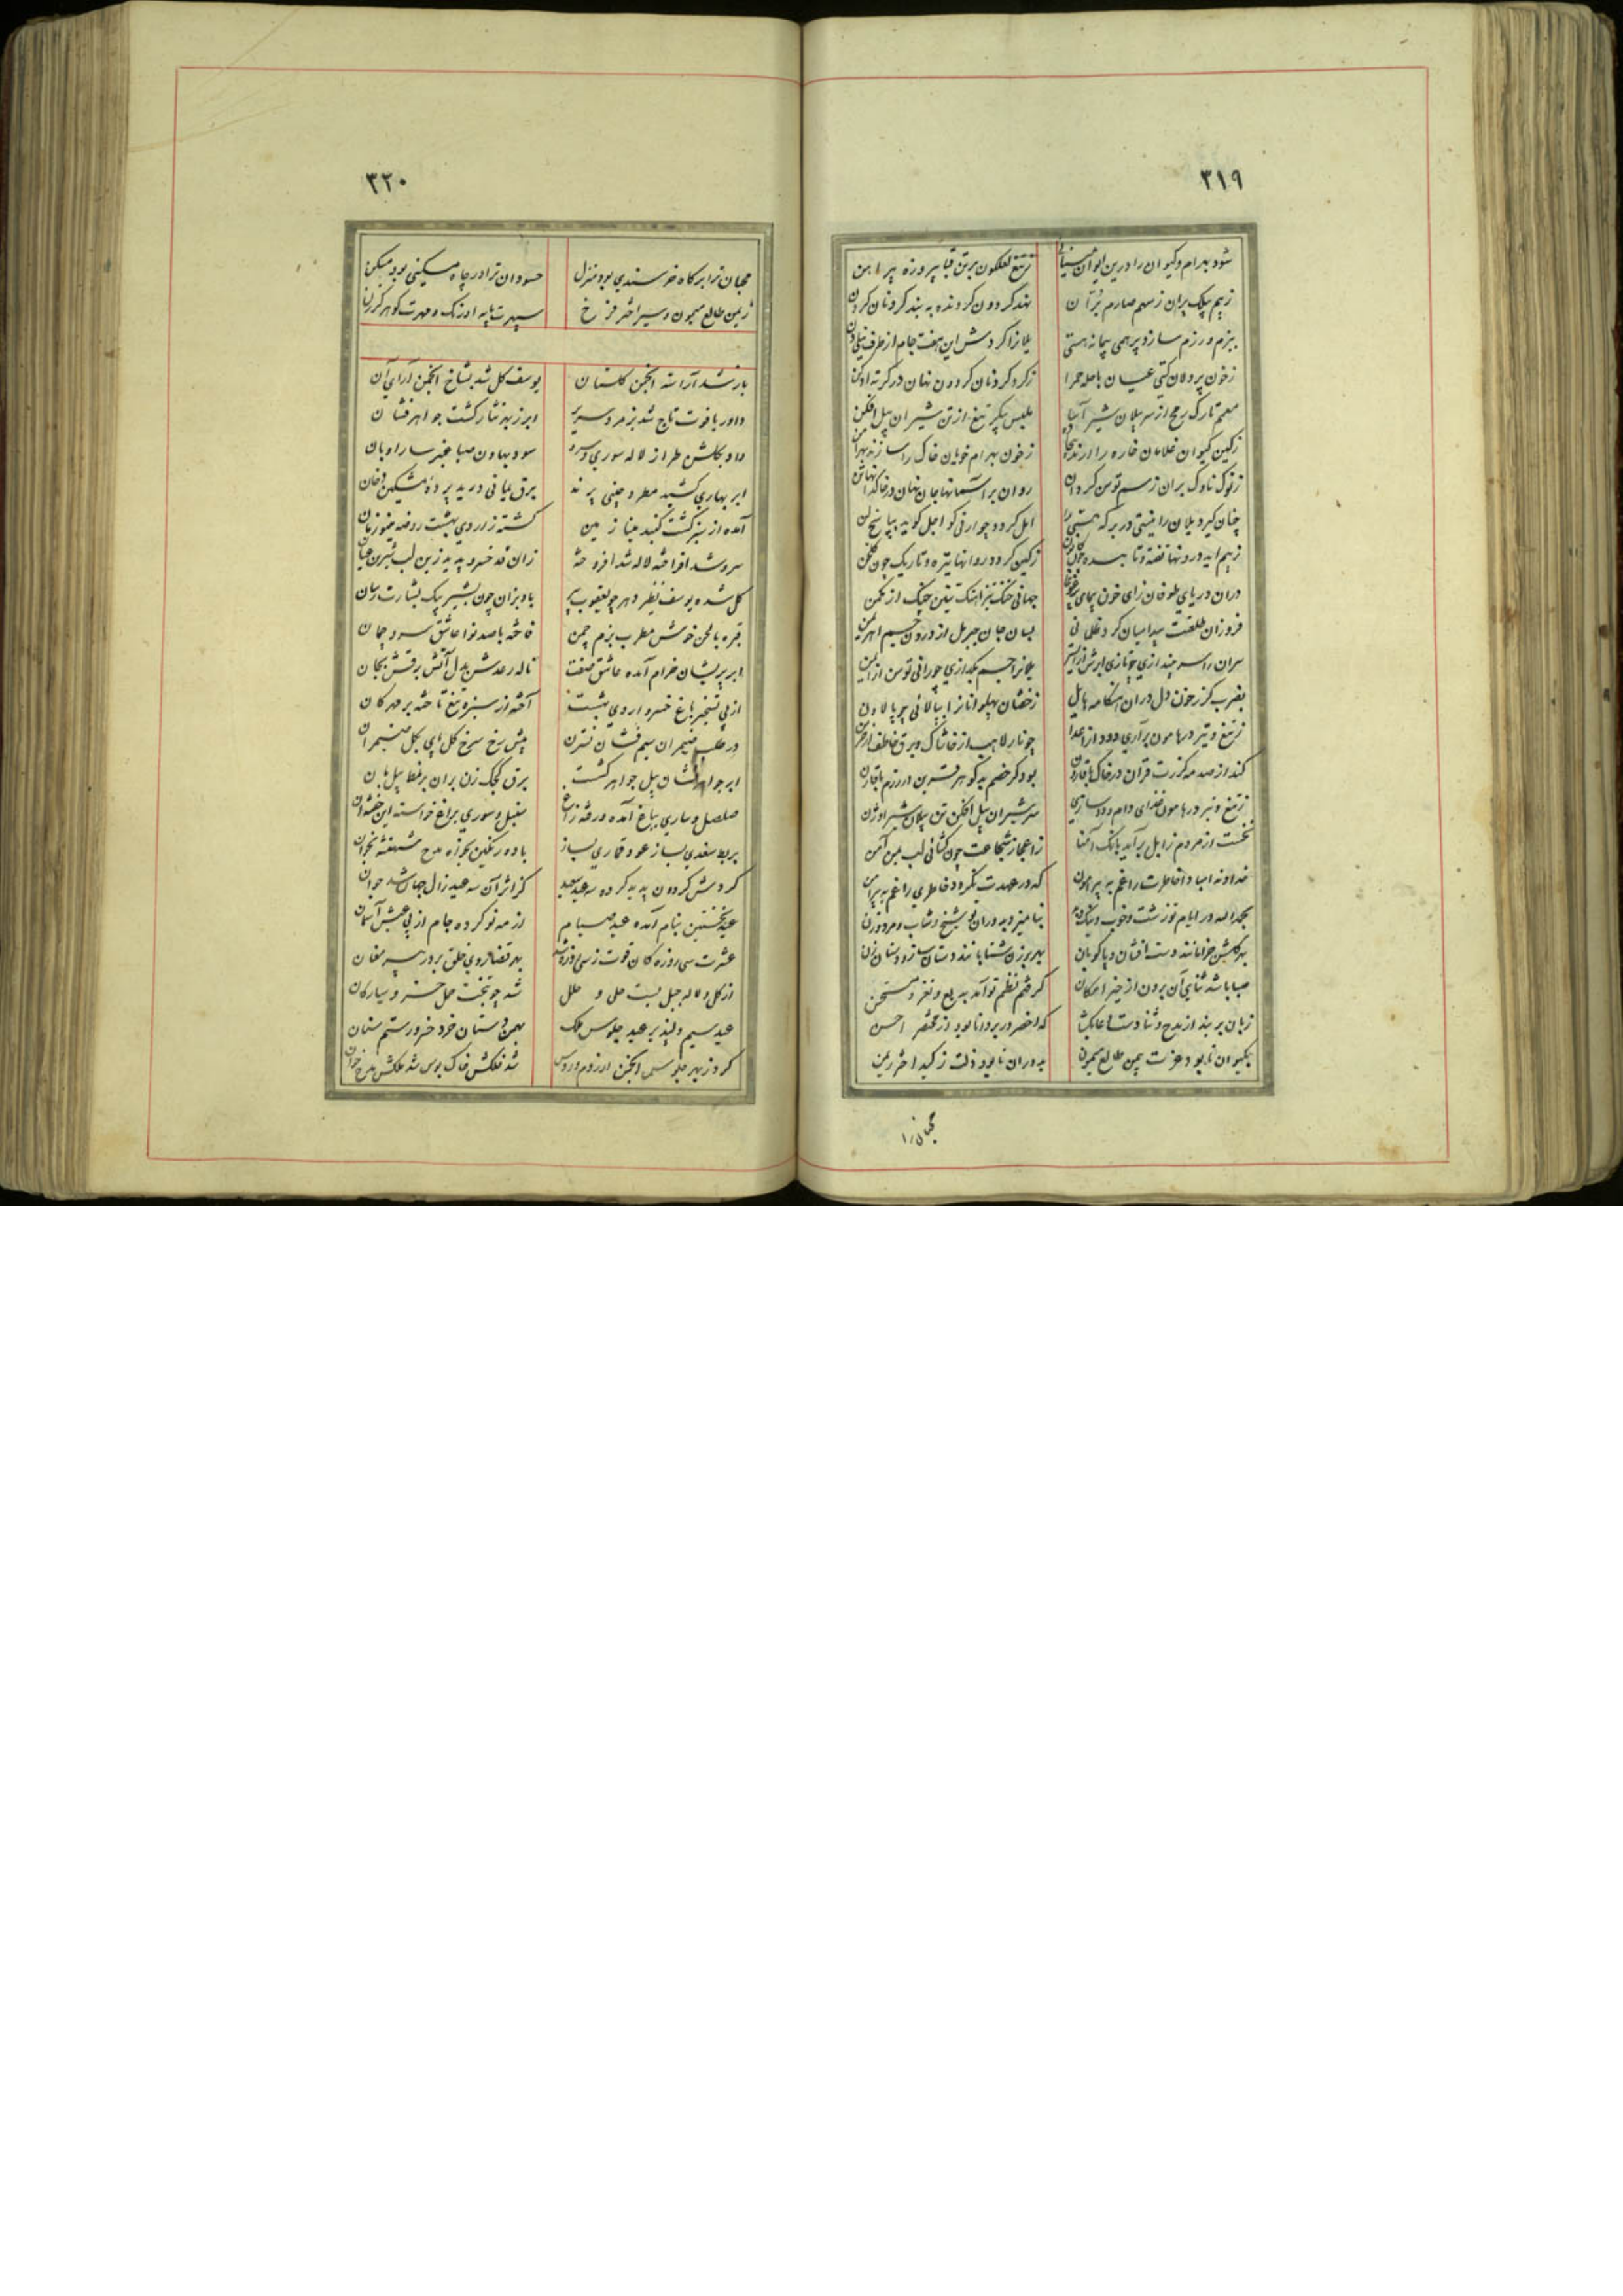 ۳۱۹
شود بهرام و کیوان را درین ایوان مینائی ز تیغ لعلگون بر تن قبا پیروزه پیراهن
ز بیم پیلک پران ز سهم صارم بران نهد گردون گردنده به بند گردنان گردن
ببزم و رزم سازد پر همی پیمانه هستی یلانرا گردش این هفت جام از
ز خون پردلان گیتی عیان با حله حمرا ز گرد گردنان گردون نهان در کرته ادکن
معمم تارک رمح از سر یلان شیر تیغ از تن شیران پیل افکن
ز کین کیوان غلامان خاره را ز خون بهرام خویان خاک را سازند
ز نوک ناوک بران ز سم توسن گردان روان بر آسمانها جان نهان در خاکها
چنان گیرد یلان را نیستی در بر که هستی را اجل گوید بپاسخ لن
ز بیم آید درونها تفته و تابیده چون کانون ز کین گردد روانها تیره و تاریک چون گلخن
دران دریای طوفان زای خون پیمای جهانی خنگ تیز آهنگ
فروزان طلعتت پیدا میان گرد ظلمانی بسان جان جبریل از درون جسم اهریمن
سران را سر بیندازی چو تازی ابرش از ایسر یلانرا جسم بگدازی چو رانی توسن از ایمن
بضرب گرز خون دل دران هنگامه هایل ز خفتان پهلوانانرا بپالائی چو پالاون
ز تیغ و تیر در هامون برآری دود از اعدا چو نار لاهب از خاشاک و برق خاطف از خرمن
کند از صدمه گرزت قران در خاک با قارون بود گر خصم بدگوهر قرین در رزم با قارن
ز تیغ و تیر در هامون غذای دام و دد سازی سر شیران پیل افکن تن پیلان شیر اوژن
نخست از مردم زابل برآید بانگ آمنا ز اعجاز شجاعت چون گشائی لب بمن آمن
خداوندا مبادا خاطرت را غم به پیرامون که در عهدت نگردد خاطری را غم به پیرامن
بحمدالله در ایام تو زشت و خوب و نیک و بد نیامیزد بدوران تو شیخ و شاب و مرد و زن
بهر گلشن خرامانند دست افشان و پا کوبان بهر برزن شتابانند دستان ساز و دستان زن
صبا باشد ثنای آن برون از حیز امکان گرفتم نظم تو آمد بدیع و نغز و مستحسن
زبان بر بند از مدح و ثنا دست دعا بگشا که اخصر در بر دانا بود از مختصر احسن
بکیوان تا بود عزت بیمن طالع میمون بدوران تا بود ذلت ز کید اختر ریمن
محبان را
۳۲۰
محبان ترا بر گاه خرسندی بود منزل حسودان ترا در چاه مسکینی بود مسکن
ز یمن طالع میمون و سیر اختر فرخ سپهرت پایه اورنگ و مهرت گوهر گرزن
باز شد آراسته انجمن گلستان یوسف گل شد بشاخ انجمن آرای آن
داور یاقوت تاج شد بزمرد سریر ابر زبهر نثار گشت جواهر فشان
داد بگلشن طراز لاله سوری و سرو سود بهاون صبا عنبر سارا و بان
ابر بهاری کشید مطرد چینی پرند برق یمانی درید پرده مشکین دخان
آمده از سبز گشت گنبد مینا زمین گشته ز اردی بهشت روضه مینو زمان
سرو شد افراخته لاله شد افروخته زان قد خسرو پدید زین لب شیرین عیان
گل شده یوسف نظر دهر چو یعقوب پیر باد بزان چون بشیر پیک بشارت رسان
قبره بالحن خوش مطرب بزم چمن فاخته با صد نوا عاشق سرو چمان
ابر پریشان خرام آمده عاشق صفت ناله رعدش بدل آتش برقش بجان
از پی تسخیر باغ خسرو اردی بهشت آخته از سبزه تیغ تاخته بر مهرگان
در طلب ضیمران سیم فشان نسترن پیش رخ سرخ گل ضیمران
ابر جواهر فشان پیل جواهر کشست برق کجک زن بران پیلبان
صلصل و ساری بباغ آمده ورقه زراغ سنبل و سوری براغ خواسته این خفته آن
بربط سغدی بساز عود قماری بسوز باده رنگین بخور تازه مدح شهنشه بخوان
گردش گردون پدید کرده سه عید سعید کز اثر آن سه عید زال جهان شد جوان
عید نخستین بنام آمده عید صیام از مه نو کرده جام از پی عیش آسمان
عشرت سی روزه کان فوت ز سی روزه شد بهر قضا روی خلق بر در پیر مغان
از گل و لاله جبل بست حلی و حلل شد چو بتخت حمل خسرو سیارگان
عید سیم دلپذیر عید جلوس ملک بهمن دستان خرد خسرو رستم سنان
کرد ز بهر جلوس انجمن از روم و روس شد فلکش خاک بوس شد ملکش مدح خوان